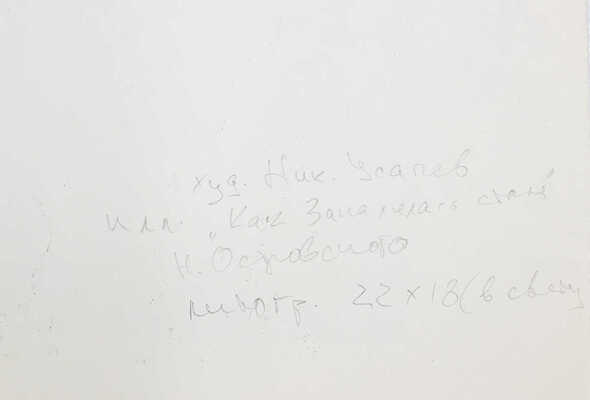 худ. Ник. Усачев
илл. "Как Закалялась сталь"
Н. Островского
литогр. 22×18 (в свету